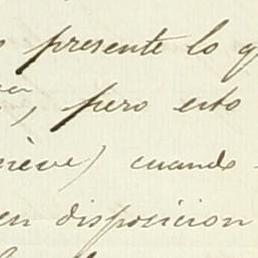 presente lo q
, pero esto
nève) cuando
en disposicion